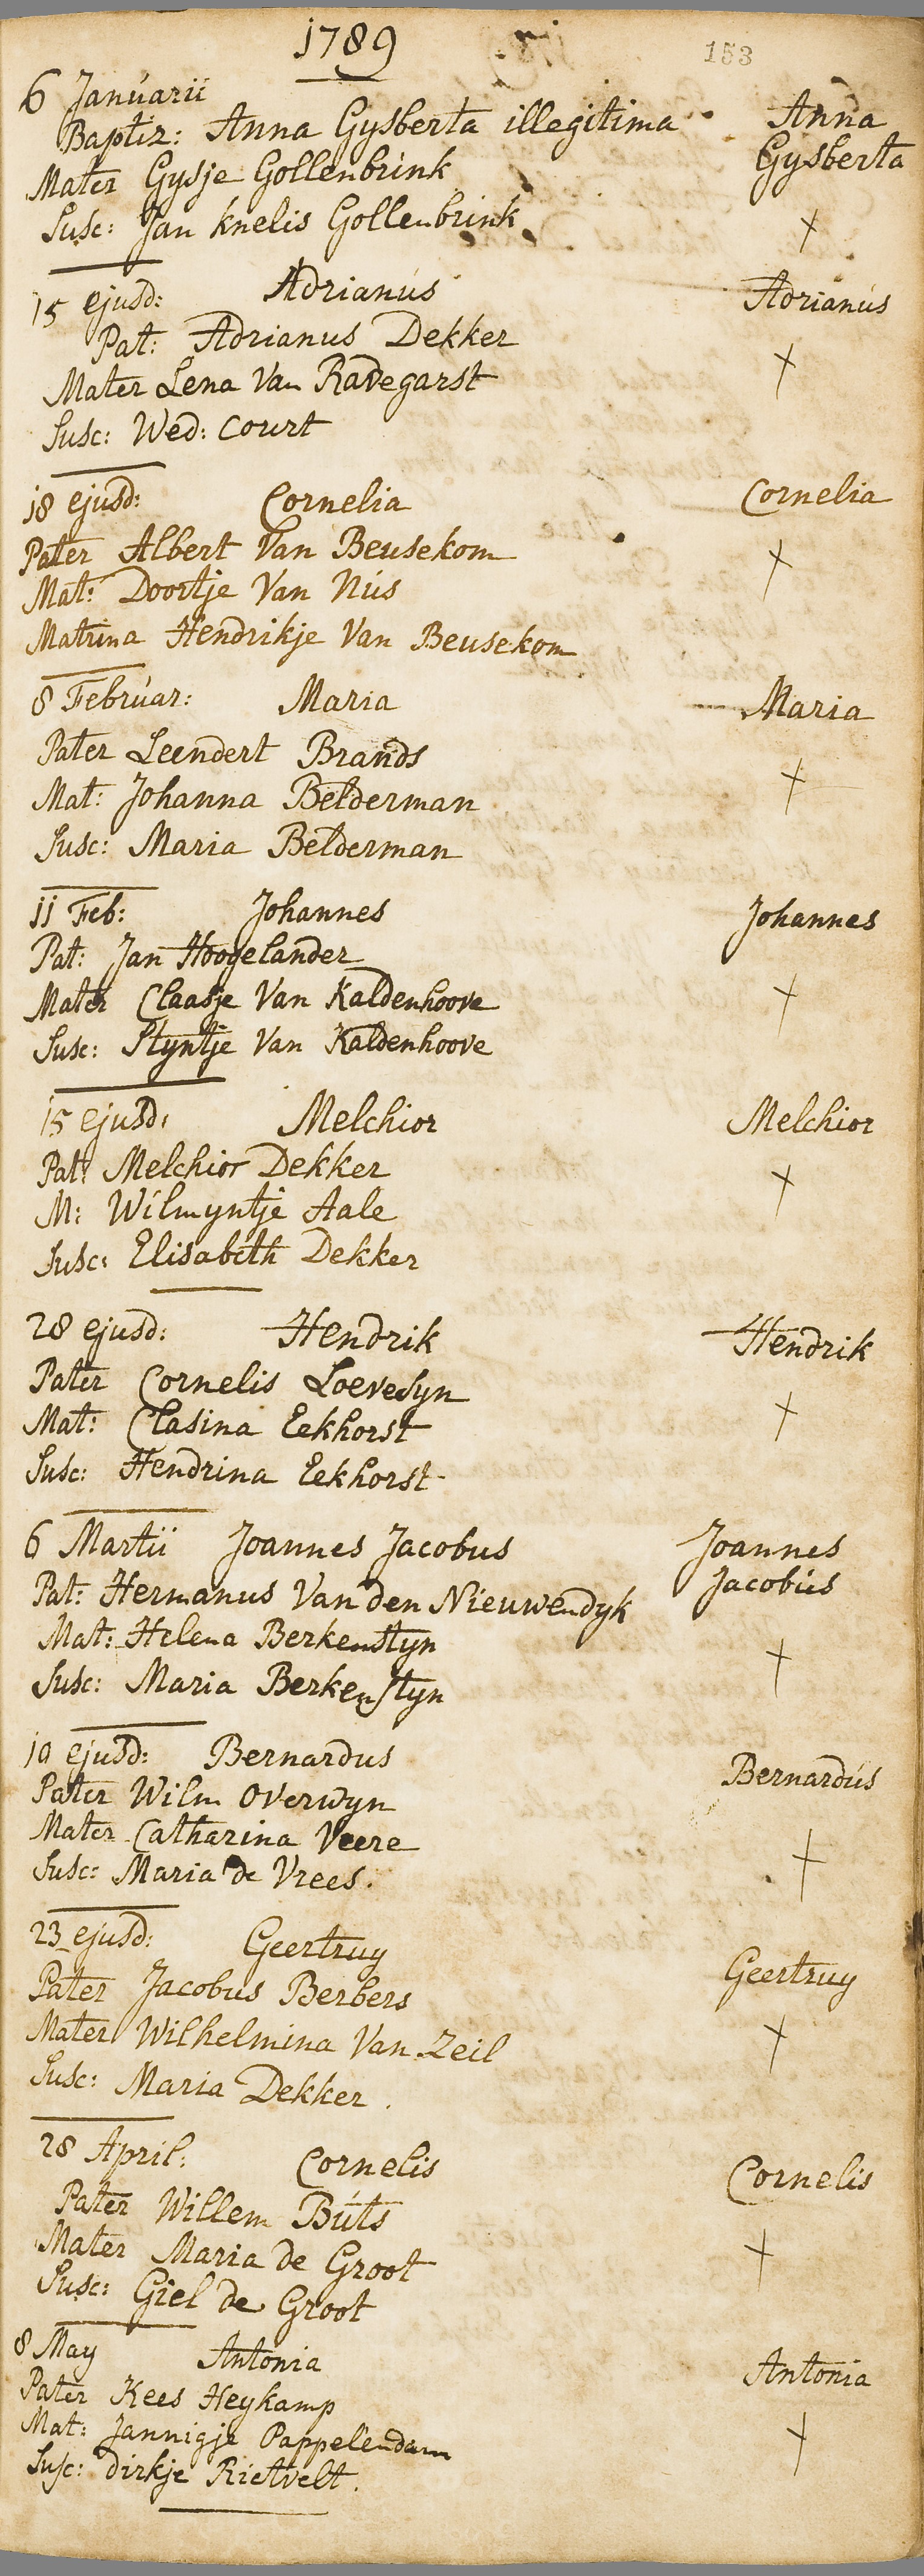 1789
153
6 Januarii
Baptiz: Anna Gysberta illegitima
Anna
Gysberta
Mater Gysje Gollenbrink
Susc: Jan Knelis Gollenbrink
15 ejusd: Adrianus
Adrianus
Pat: Adrianus Dekker
Mater Lena Van Radegarst
Susc: Wed: Court
18 ejusd: Cornelia
Cornelia
Pater Albert Van Beusekom
Mat: Doortje Van Nus
Matrina Hendrikje Van Beusekom
8 Februar: Maria
Maria
Pater Leendert Brands
Mat: Johanna Belderman
Susc: Maria Belderman
11 Feb: Johannes
Johannes
Pat: Jan Hoogelander
Mater Claasje Van Kaldenhoove
Susc: Styntje Van Kaldenhoove
15 ejusd: Melchior
Melchior
Pat: Melchior Dekker
M: Wilmyntje Aale
Susc: Elisabeth Dekker
28 ejusd: Hendrik
Hendrik
Pater Cornelis Loevesyn
Mat: Clasina Eekhorst
Susc: Hendrina Eekhorst
6 Martii Joannes Jacobus
Joannes
Jacobus
Pat: Hermanus Van den Nieuwendyk
Mat: Helena Berkenstyn
Susc: Maria Berkenstyn
19 ejusd: Bernardus
Bernardus
Pater Wilm Overwyn
Mater Catharina Veere
Susc: Maria de Vrees.
23 ejusd: Geertruy
Geertruy
Pater Jacobus Berbers
Mater Wilhelmina Van Zeil
Susc: Maria Dekker.
28 April: Cornelis
Cornelis
Pater Willem Buts
Mater Maria de Groot
Susc: Giel de Groot
8 May Antonia
Antonia
Pater Kees Heykamp
Mat: Jannigje Pappelendam
Susc: dirkje Rietvelt.